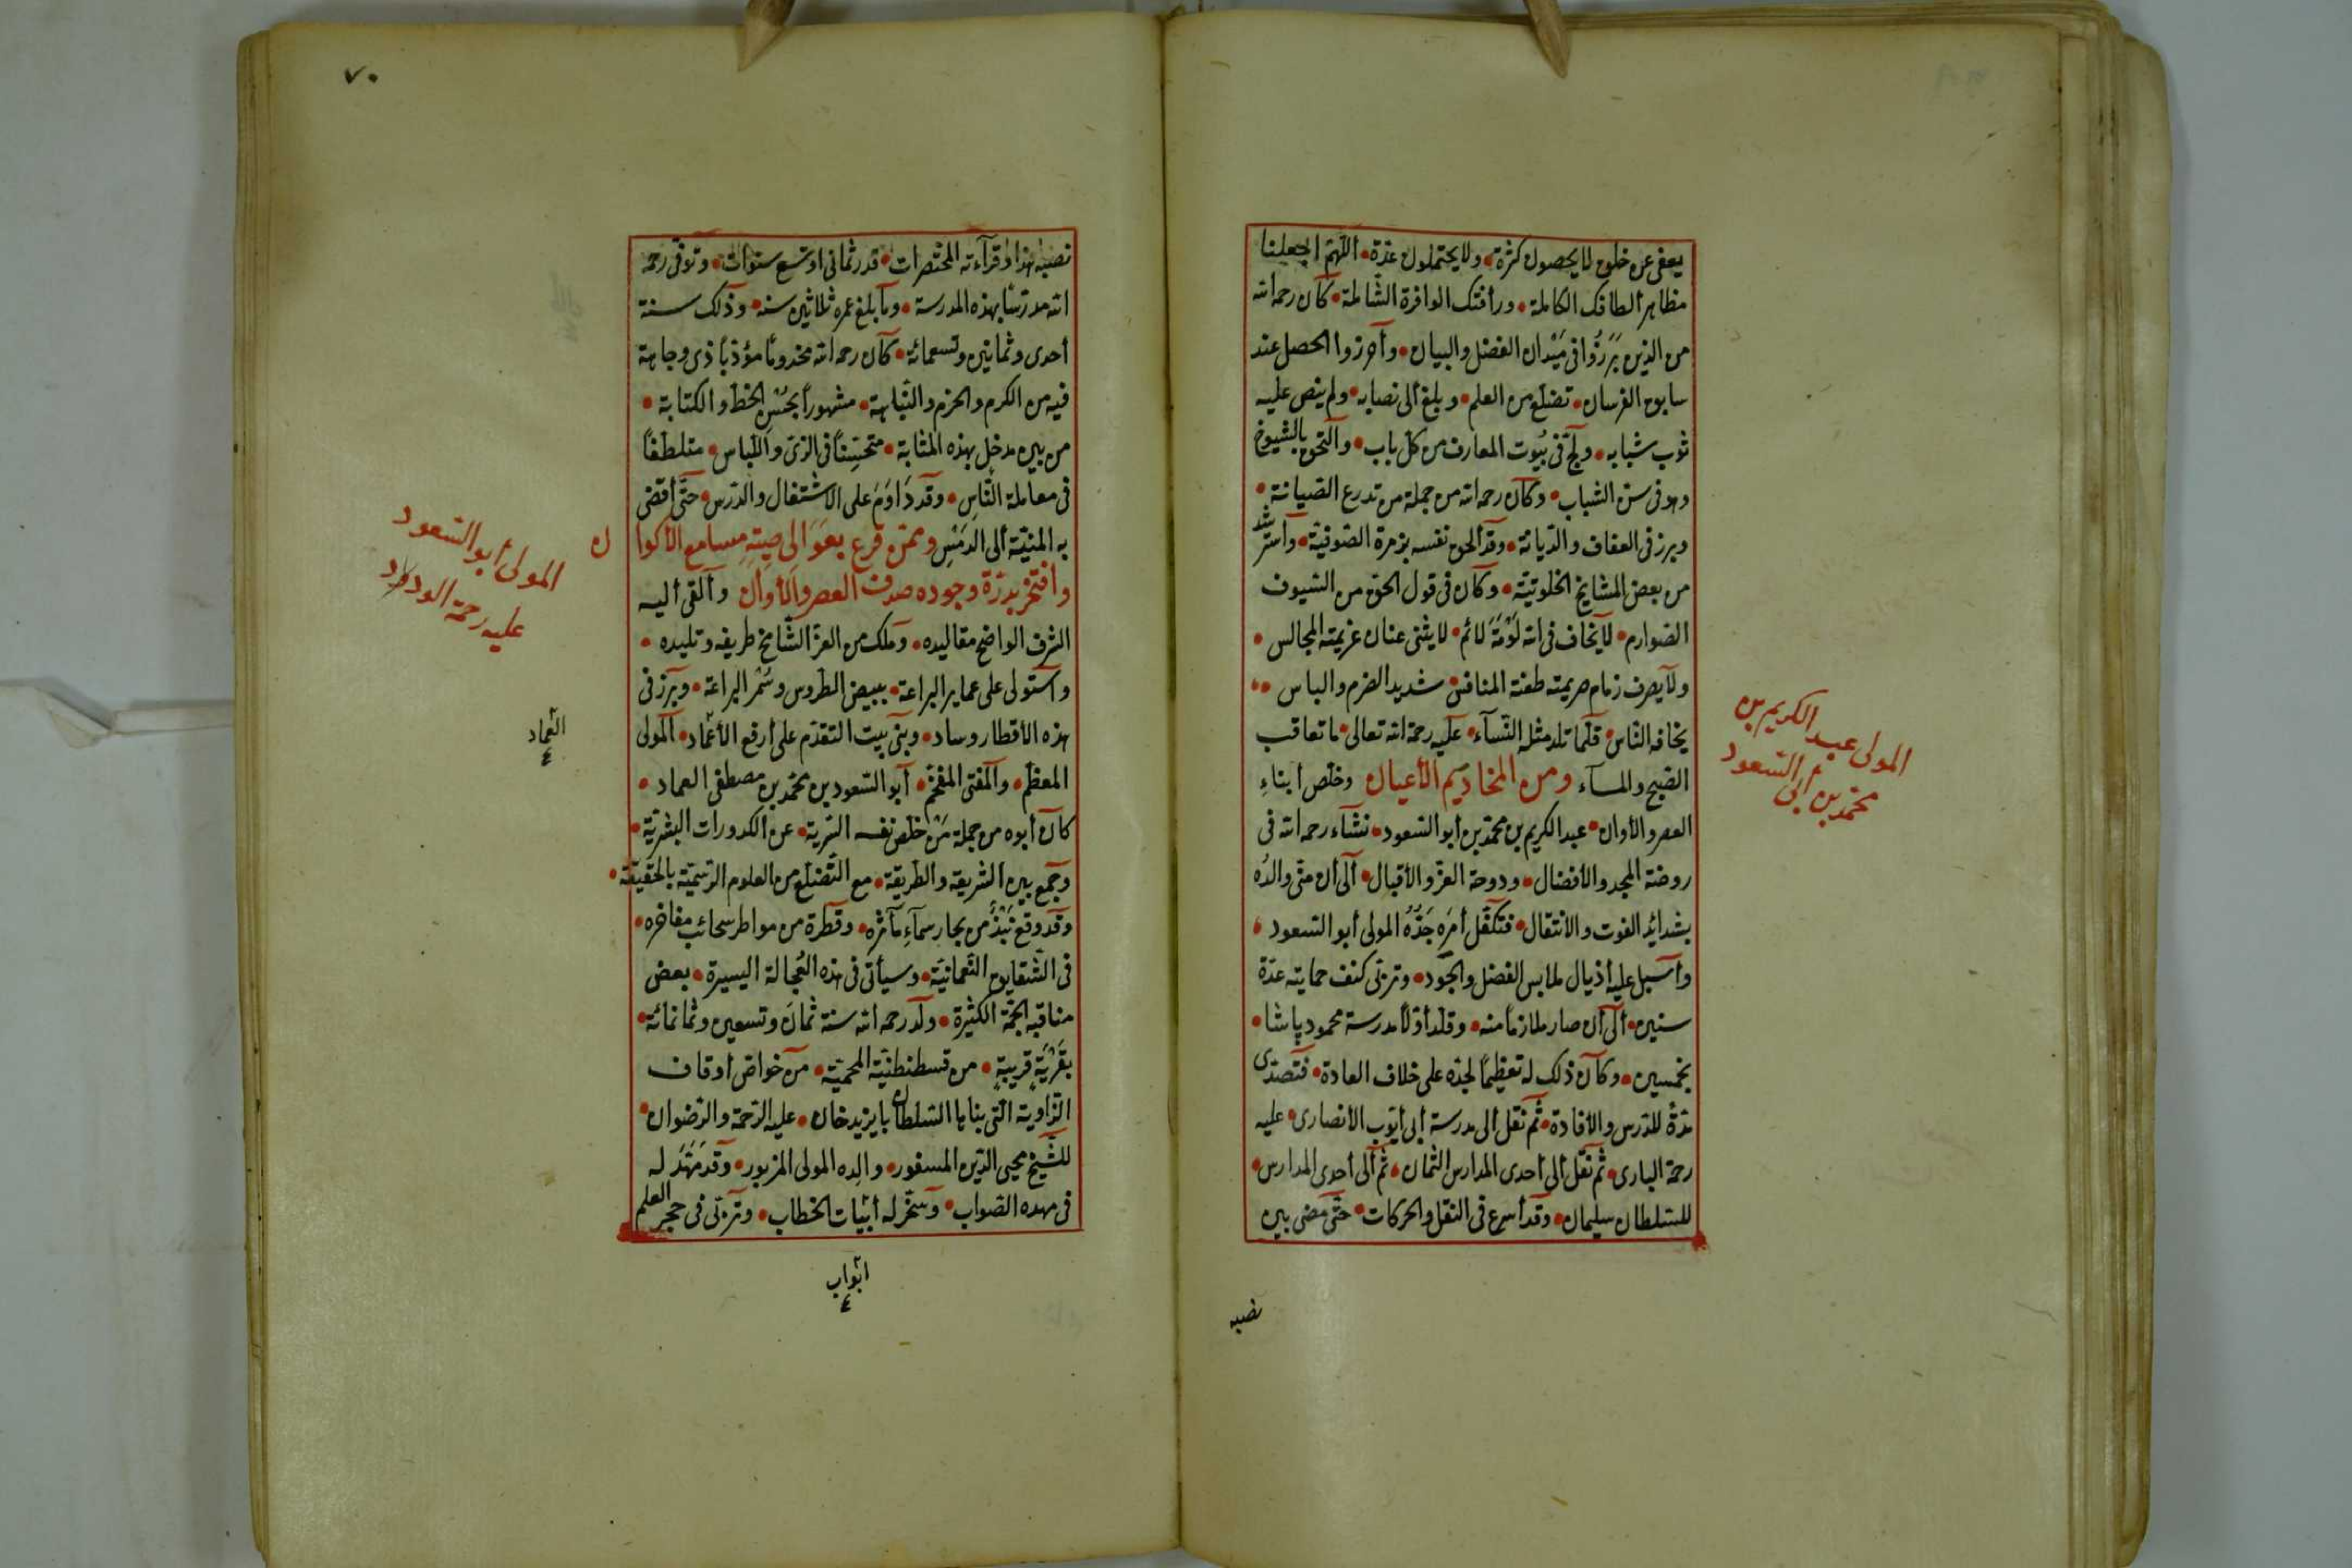 يعفى عن خلق لا يحصون كثرة ولا يحتملون عدة اللهم اجعلنا
مظاهر ألطافك الكاملة ورأفتك الوافرة الشاملة كان رحمه الله
من الذين بَرَزُوا فى مَيْدان الفضل والبيان وأحرزوا الخصل عند
سابق الفرسان تضلع من العلم وبلغ ألى نصابه ولم ينض عليه
ثوب شبابه ولج فى بيوت المعارف من كل باب والتحق بالشيوخ
وهو فى سن الشباب وكان رحمه الله من جملة من تدرع الصيانة
وبرز فى العفاف والديانة وقد ألحق نفسه بزمرة الصوفية واسترشد
من بعض المشايخ الخلوتية وكان فى قول الحق من السيوف
الصوارم لا يخاف فى الله لَوْمَةَ لائم لا يثنى عنان عزيمته المجالس
ولا يصرف زمام صريمته طعنة المنافس شديد الضرم والباس
يخافه الناس قلما تلد مثله النسآء عليه رحمة الله تعالى ما تعاقب
الصبح والمسآء ومن المخاديم الأعيان وخلص أبناءِ
العصر والأوان عبد الكريم بن محمد بن أبو السعود نشاء رحمه الله فى
روضة المجد والأفضال ودوحة العز والأقبال ألى أن منى والدُه
بشدائد الفوت والأنتقال فتكفل أمَره جَدُّهُ المولى أبو السعود
وأسبل عليه أذيال ملابس الفضل والجود وتربى كنف حمايته عدة
سنين ألى أن صار ملازماً منه وقلد أولاً مدرسة محمود پاشا
بخمسين وكان ذلك له تعظيماً لجده على خلاف العادة فتصدى
مدةً للدرس والأفادة ثم نقل ألى مدرسة أبى أيوب الأنصارى عليه
رحمة البارى ثم نقل ألى أحدى المدارس الثمان ثم ألى أحدى المدارس
للسلطان سليمان وقد أسرع فى النقل والحركات حتى مضى بين
نصبه
المولى عبد الكريم بن
محمد بن أبى السعود
٧٠
نصبه هذا وقرآءته المختصرات قدر ثمانى او تسع سنوات وتوفى رحمه
الله مدرسًا بهذه المدرسة وما بلغ عمره ثلاثين سنة وذلك سنة
أحدى وثمانين وتسعمائة كان رحمه الله مخدومًا مؤدباً ذى وجاهة
فيه من الكرم والحزم والنباهة مشهوراً بحُسْنِ الخط والكتابة
من بين مدخل بهذه المثابة متحسِّناً فى الزى واللباس متلطفًا
فى معاملة الناس وقد دَاوَمَ على الاشتغال والدرس حتى أفضى
به المنية ألى الرمْسِ وممن قرع بعَوَالى صيته مسامع الأكوا
ن
وافتخر بدرة وجوده صدف العصر والأوان وألقى أليه
الشرف الواضح مقاليده وملك من العز الشامخ طريفه وتليده
واستولى على عماير البراعة ببيض الطروس وسُمْر اليراعة وبرز فى
هذه الأقطار وساد وبنى بيت التقدم على أرفع الأعماد المولى
المعظم والمفتى المفخم أبو السعود بن محمد بن مصطفى العماد
كان أبوه من جملة مَنْ خلص نفسه السرية عن الكدورات البشرية
وجمع بين الشريعة والطريقة مع التضلع من العلوم الرسمية بالحقيقة
وقد وقع نَبْذٌ من بحار سمآءِ مآثره وقطرة من مواطر سحائب مفاخره
فى الشقايق النعمانية وسيأتى فى هذه العُجالة اليسيرة بعض
مناقبه الجمّة الكثيرة ولد رحمه الله سنة ثمان وتسعين وثمانمائة
بقَرْيَةٍ قريبةٍ من قسطنطنية المحمية من خواص أوقاف
الزاوية التى بناها السلطان بايزيد خان عليه الرحمة والرضوان
للشيخ محيى الدين المسفور والِده المولى المزبور وقد مَهَدَ له
فى مهده الصواب وسخر له أبيات الخطاب وتربى فى حجر العلم
المولى أبو السعود
عليه رحمة الودود
العماد
٤
ابواب
٤